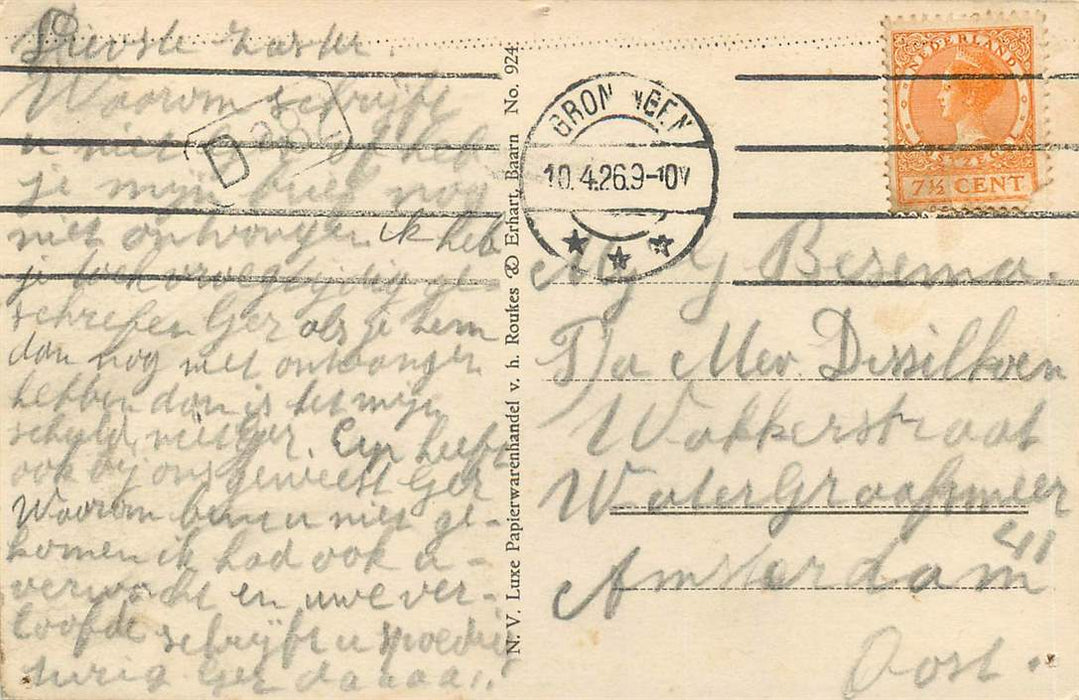 Lievste zuster.
Waarom schrijft
u niet heb
je mijn brief nog
niet ontvangen ik heb
je toch ge-
schrefen Ger als je hem
dan nog niet ontvangen
hebben dan is het mijn
schuld niet Ger. Eep heeft
ook bij ons geweest Ger
Waarom ben u niet ge-
komen ik had ook u -
verwacht en uwe ver-
loofde schrijft u spoedig
Ger daaaa..
D
N. V. Luxe Papierwarenhandel v. h. Roukes & Erhart, Baarn No. 924
GRONINGEN
10.4.26.9-10V
NEDERLAND
7½ CENT
G Besema.
P/a Mev. Dissilkoen
Wakkerstraat 41
WaterGraafsmeer
Amsterdam
Oost.